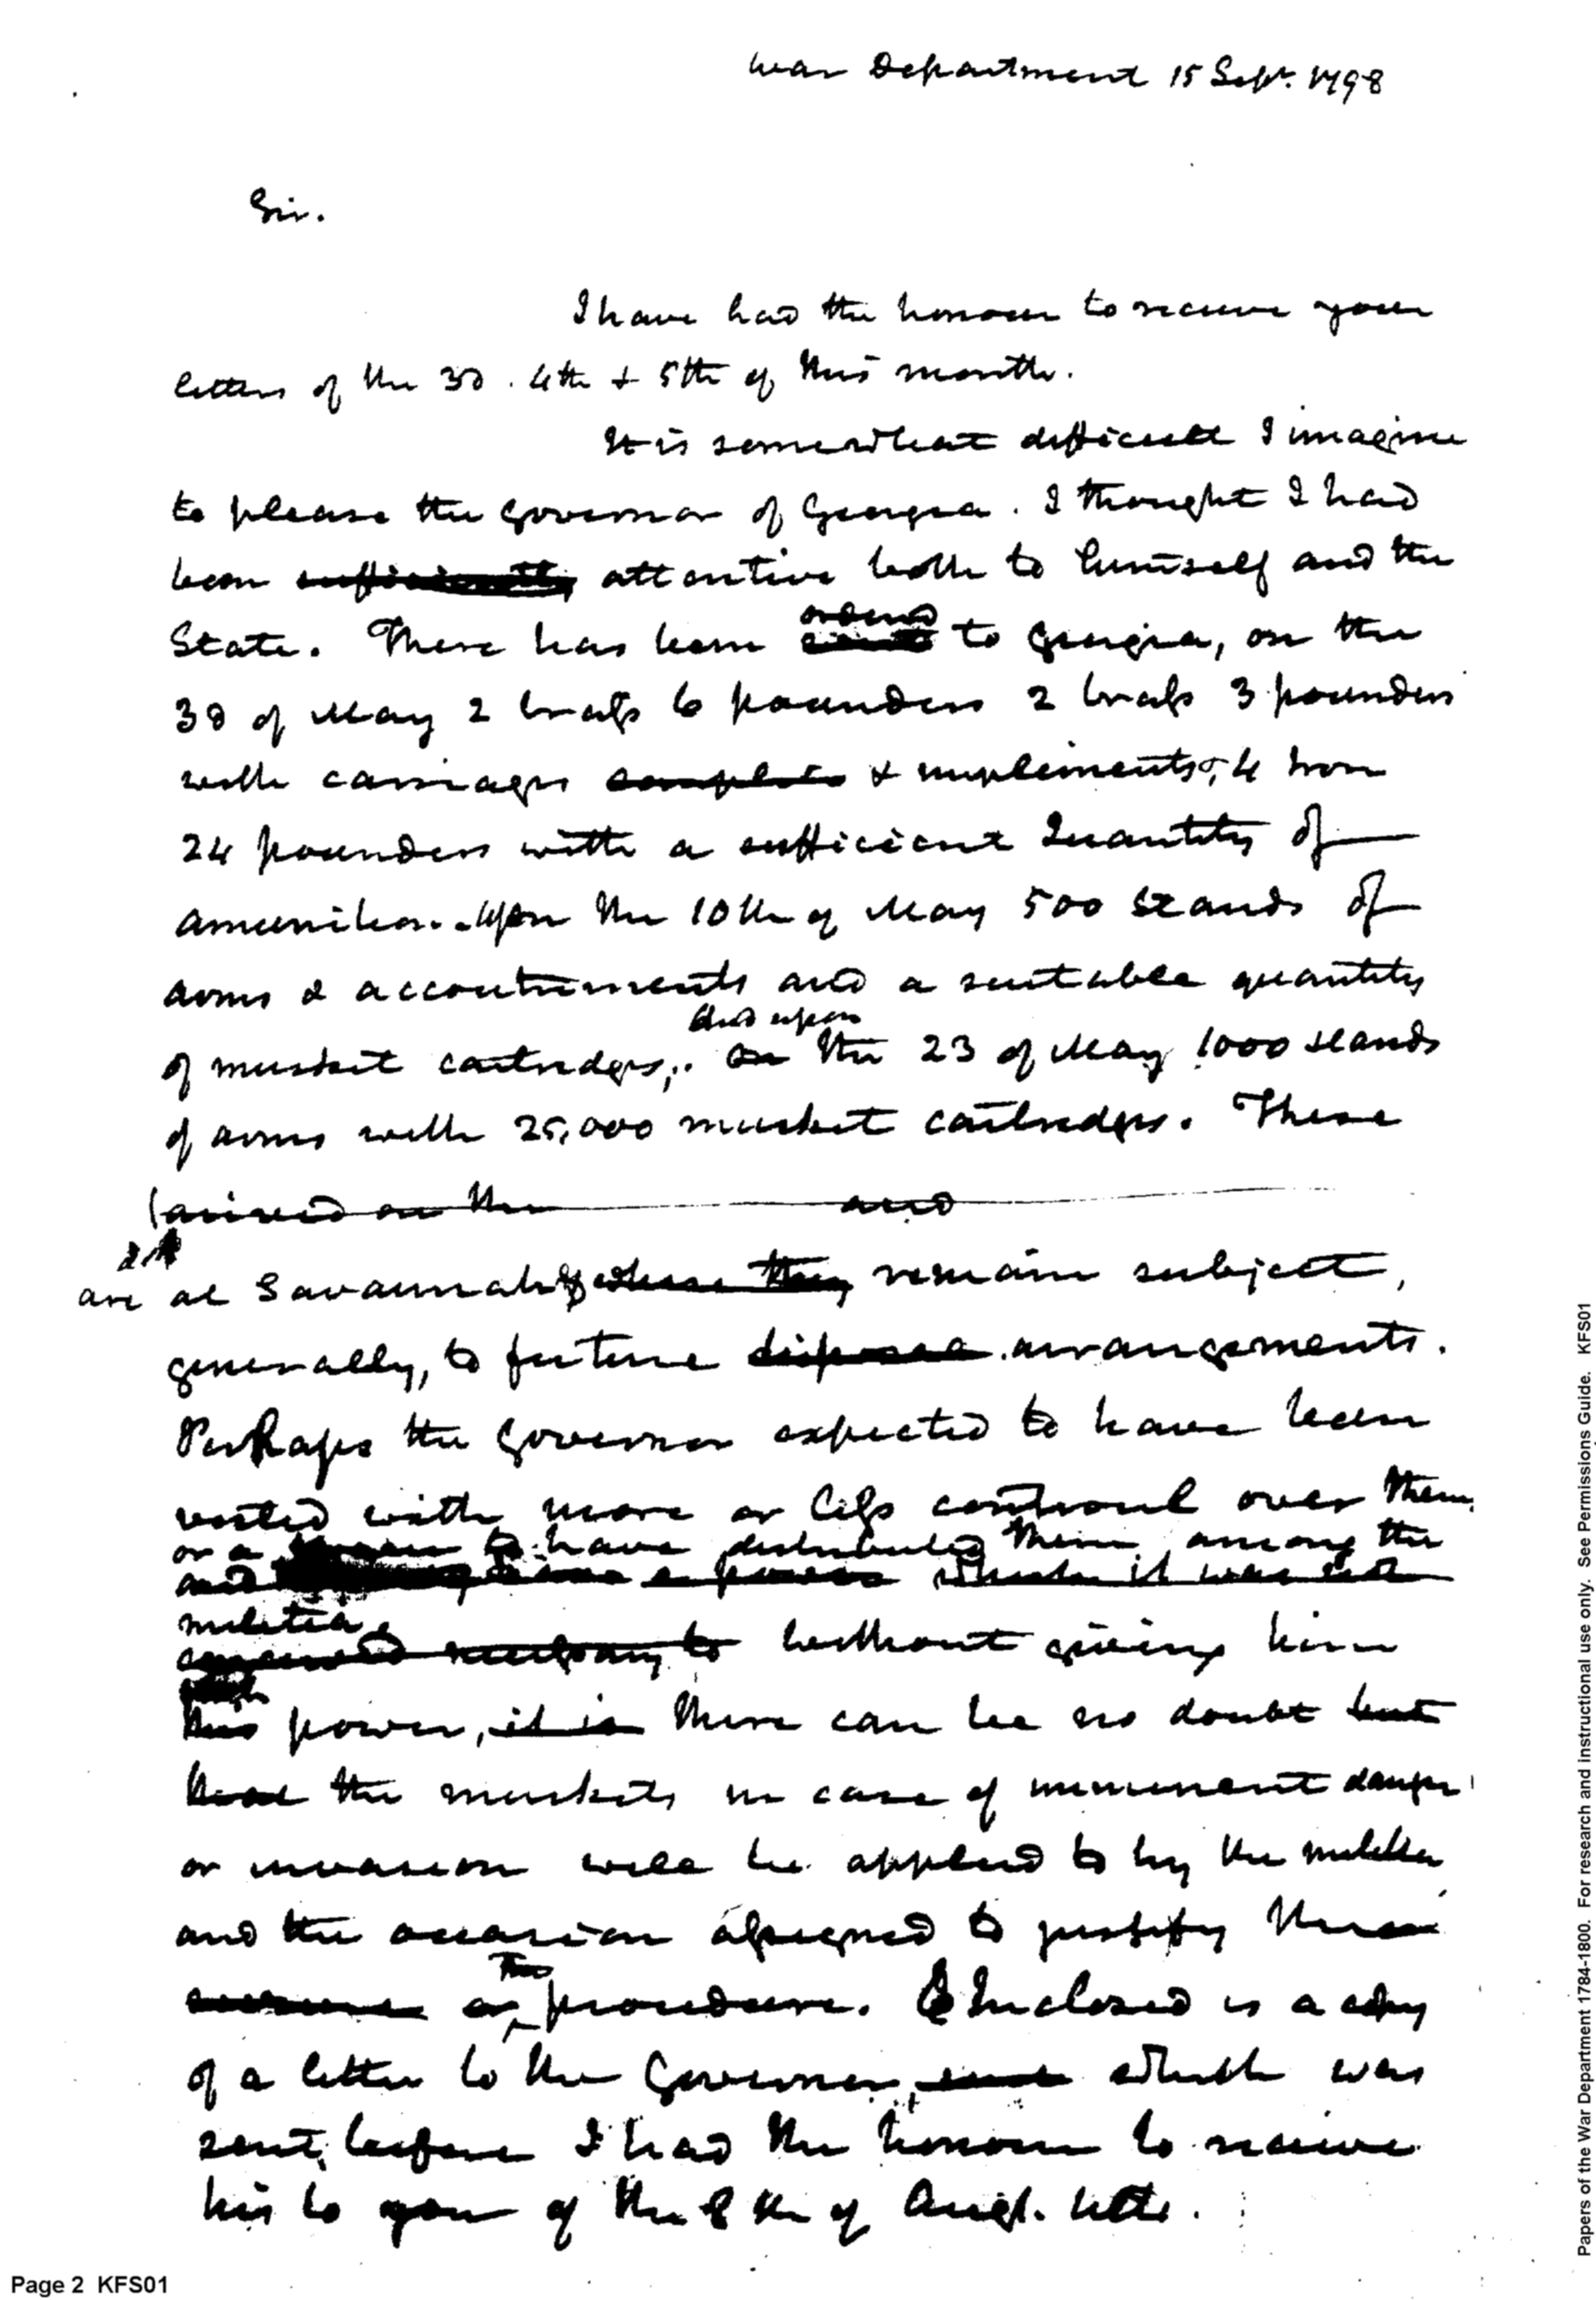 War Department 15 Sept. 1798
Sir.
I have had the honour to receive your
letters of the 3d. 4th & 5th of this month.
It is somewhat difficult I imagine
to please the Governor of Georgia. I thought I had
been sufficiently attentive both to himself and the
ordered
State. There has been sent to Georgia, on the
3d of May 2 brass 6 pounders 2 brass 3 pounders
with carriages complete & implements, 4 iron
24 pounders with a sufficient Quantity of
amunition. Upon the 10th of May 500 Stands of
arms & accoutrements and a suitable quantity
And upon
of musket cartridges; On the 23 of May 1000 stands
of arms with 25,000 musket cartridges. These
(arrived on the and
are at Savannah & where they remain subject,
generally, to future arrangements.
Perhaps the Governor expected to have been
vested with more or less controul over them,
or a to have distributed them among the
and a power which it was not
militia.
necessary to Without giving him
this power, it is there can be no doubt but
that the muskets in case of imminent danger
or invasion will be applied to by the militia
and the occasion assigned to justify
The
or procedure. Inclosed is a copy
of a letter to the Governor, sent which was
sent, before I had the honour to receive
his to you of the 8th of Augt. ulto.
Page 2 KFS01
Papers of the War Department 1784-1800. For research and instructional use only. See Permissions Guide. KFS01